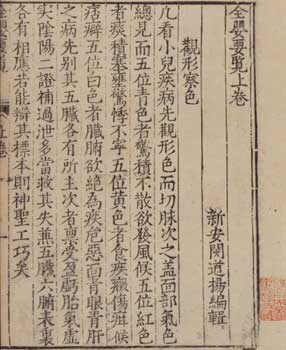 全嬰要覽上卷
新安閔道揚編輯
觀形察色
凡看小兒疾病先觀形色而切脉次之蓋面部氣色
總見而五位青色者驚積不散欲發風候五位紅色
者痰積壅盛驚悸不寧五位黃色者食疾癥傷疳候
痞癖五位曰色者臟腑欲絕為疾危惡面青眼青肝
之病先別其五臟各有所主次者禀受盈虧胎氣虛
實陰陽二證補過泄多當救其失兼五臟六腑表裏
各有相應若能辯其標本則神聖工巧矣